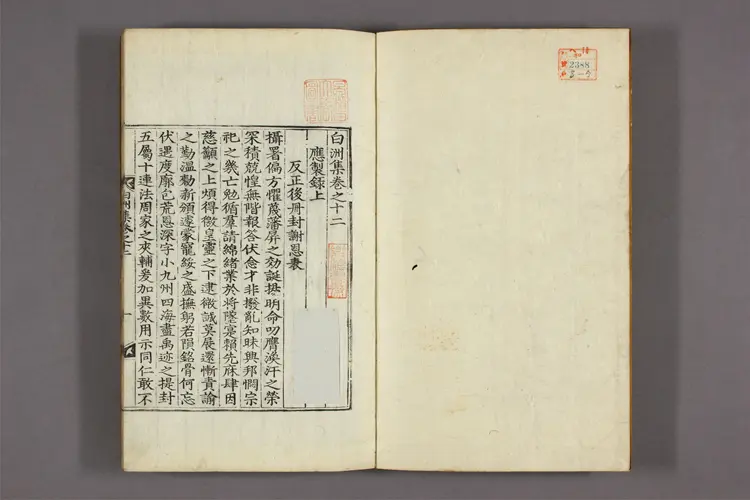 白洲集卷之十二
應製錄上
反正後冊封謝恩表
攝署偏方懼蔑藩屏之効誕揚明命叨膺渙汗之榮
罙積兢惶無階報答伏念才非撥亂知昧興邦憫宗
祀之幾亡勉循羣請綿緖業於將墜寔賴先庥肆因
慈顓之上煩得徹皇靈之下逮微誠莫展還慚賁諭
之勤溫勑新頒遽蒙寵綏之盛撫躬若隕銘骨何忘
伏遇度廓包荒恩深字小九州四海盡禹迹之提封
五屬十連法周家之夾輔爰加異數用示同仁敢不
白洲集卷之十二
2388